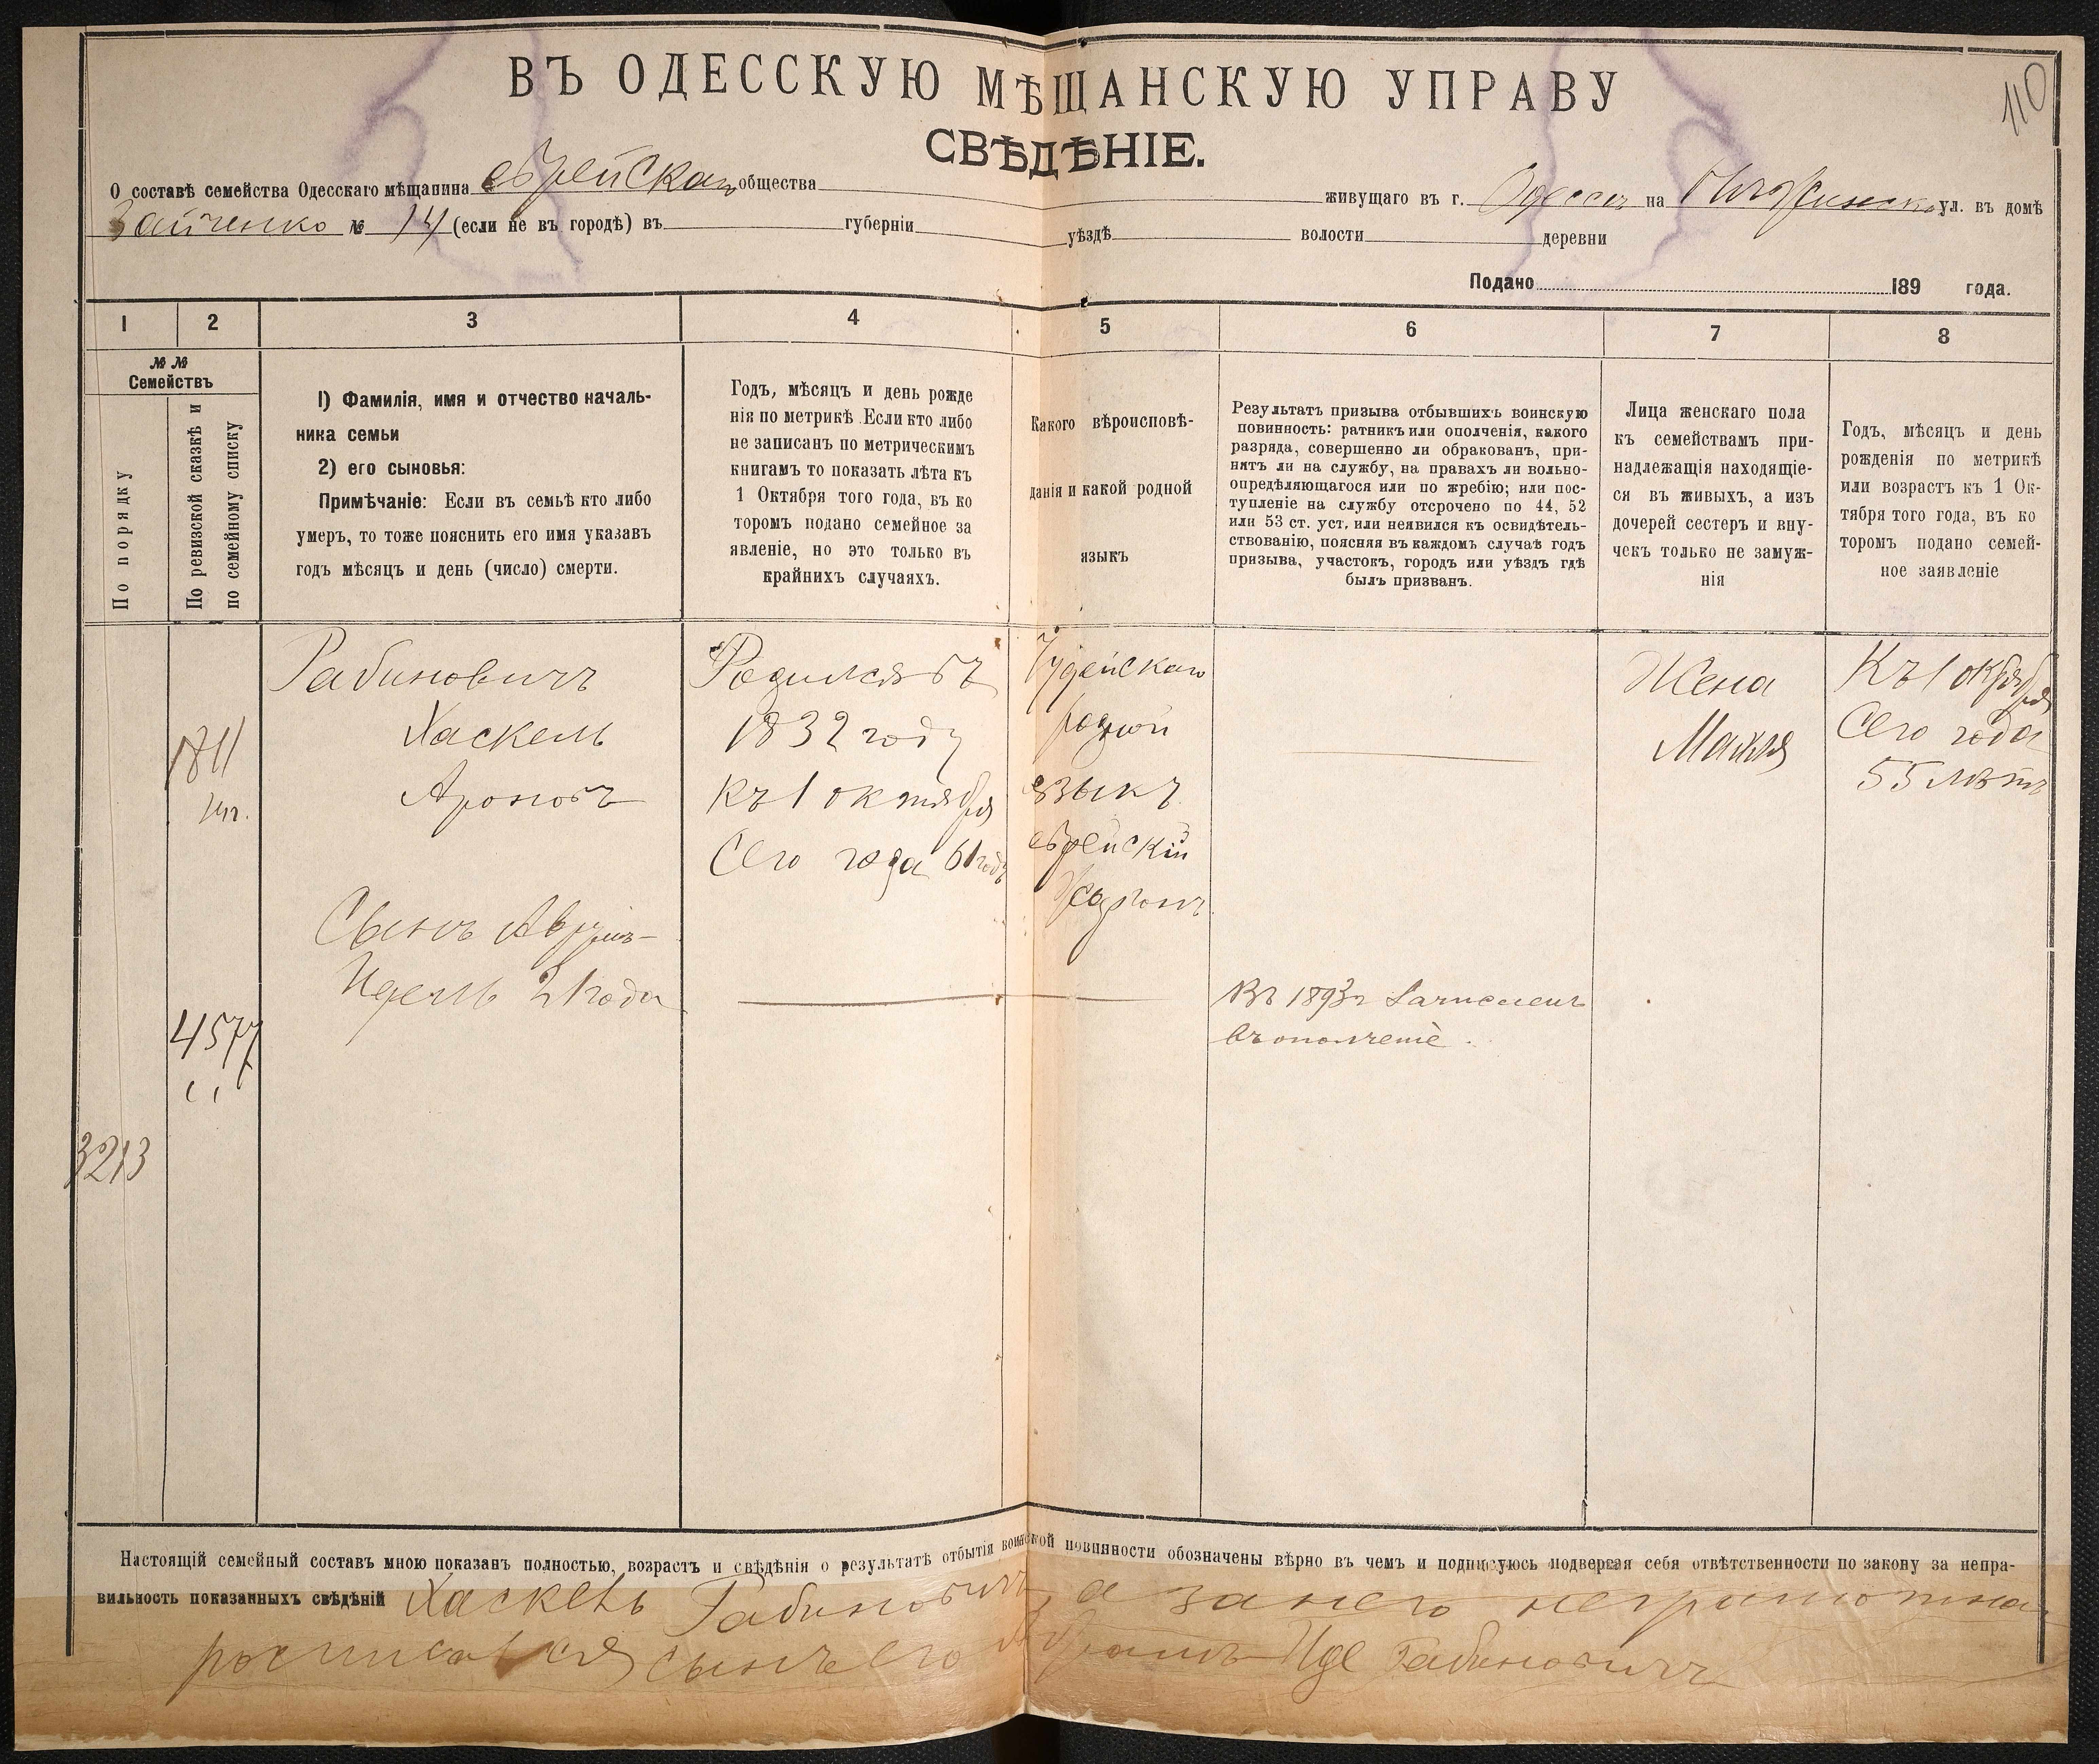 110
ВЪ ОДЕССКУЮ МѢЩАНСКУЮ УПРАВУ
СВѢДѢНІЕ.
О составѣ семейства Одесскаго мѣщанина еврейскаго общества живущаго въ г. Одессѣ на ул. въ домѣ
Зайченко № 14 (если не въ городѣ) въ губерніи уѣздѣ волости деревни
Подано 189 года.
1 2 3 4 5 6 7 8
№ №
Семействъ
По порядку
По ревизской сказкѣ и
по семейному списку
1) Фамилія, имя и отчество началь-
ника семьи
2) его сыновья:
Примѣчаніе: Если въ семьѣ кто либо
умеръ, то тоже пояснить его имя указавъ
годъ мѣсяцъ и день (число) смерти.
Годъ, мѣсяцъ и день рожде
нія по метрикѣ. Если кто либо
не записанъ по метрическимъ
книгамъ то показать лѣта къ
1 Октября того года, въ ко
торомъ подано семейное за
явленіе, но это только въ
крайнихъ случаяхъ.
Какого вѣроисповѣ-
данія и какой родной
языкъ
Результатъ призыва отбывшихъ воинскую
повинность: ратникъ или ополченія, какого
разряда, совершенно ли обракованъ, при-
нятъ ли на службу, на правахъ ли вольно-
опредѣляющагося или по жребію; или пос-
тупленіе на службу отсрочено по 44, 52
или 53 ст. уст. или неявился къ освидѣтель-
ствованію, поясняя въ каждомъ случаѣ годъ
призыва, участокъ, городъ или уѣздъ гдѣ
былъ призванъ.
Лица женскаго пола
къ семействамъ при-
надлежащія находящіе-
ся въ живыхъ, а изъ
дочерей сестеръ и вну-
чекъ только не замуж-
нія
Годъ, мѣсяцъ и день
рожденія по метрикѣ
или возрастъ къ 1 Ок-
тября того года, въ ко
торомъ подано семей-
ное заявленіе
1811
4577
3213
Рабиновичъ
Хаскель
Ароновъ
Сынъ Аврумъ-
Идель 21 года
Родился въ
1832 году
Къ 1 октября
Сего года 61 годъ
Іудейскаго
родной
языкъ
еврейскій
Жаргонъ
Въ 1893 г. Зачисленъ
въ ополченіе.
Жена
Маня
Къ 1 октября
Сего года
55 лѣтъ
Настоящій семейный составъ мною показанъ полностью, возрастъ и свѣдѣнія о результатѣ отбытія воинской повинности обозначены вѣрно въ чемъ и подписуюсь подвергая себя отвѣтственности по закону за непра-
вильность показанныхъ свѣдѣній Хаскель Рабиновичъ, а за него неграмотна
росписался сынъ его Абрамъ-Иде Рабиновичъ